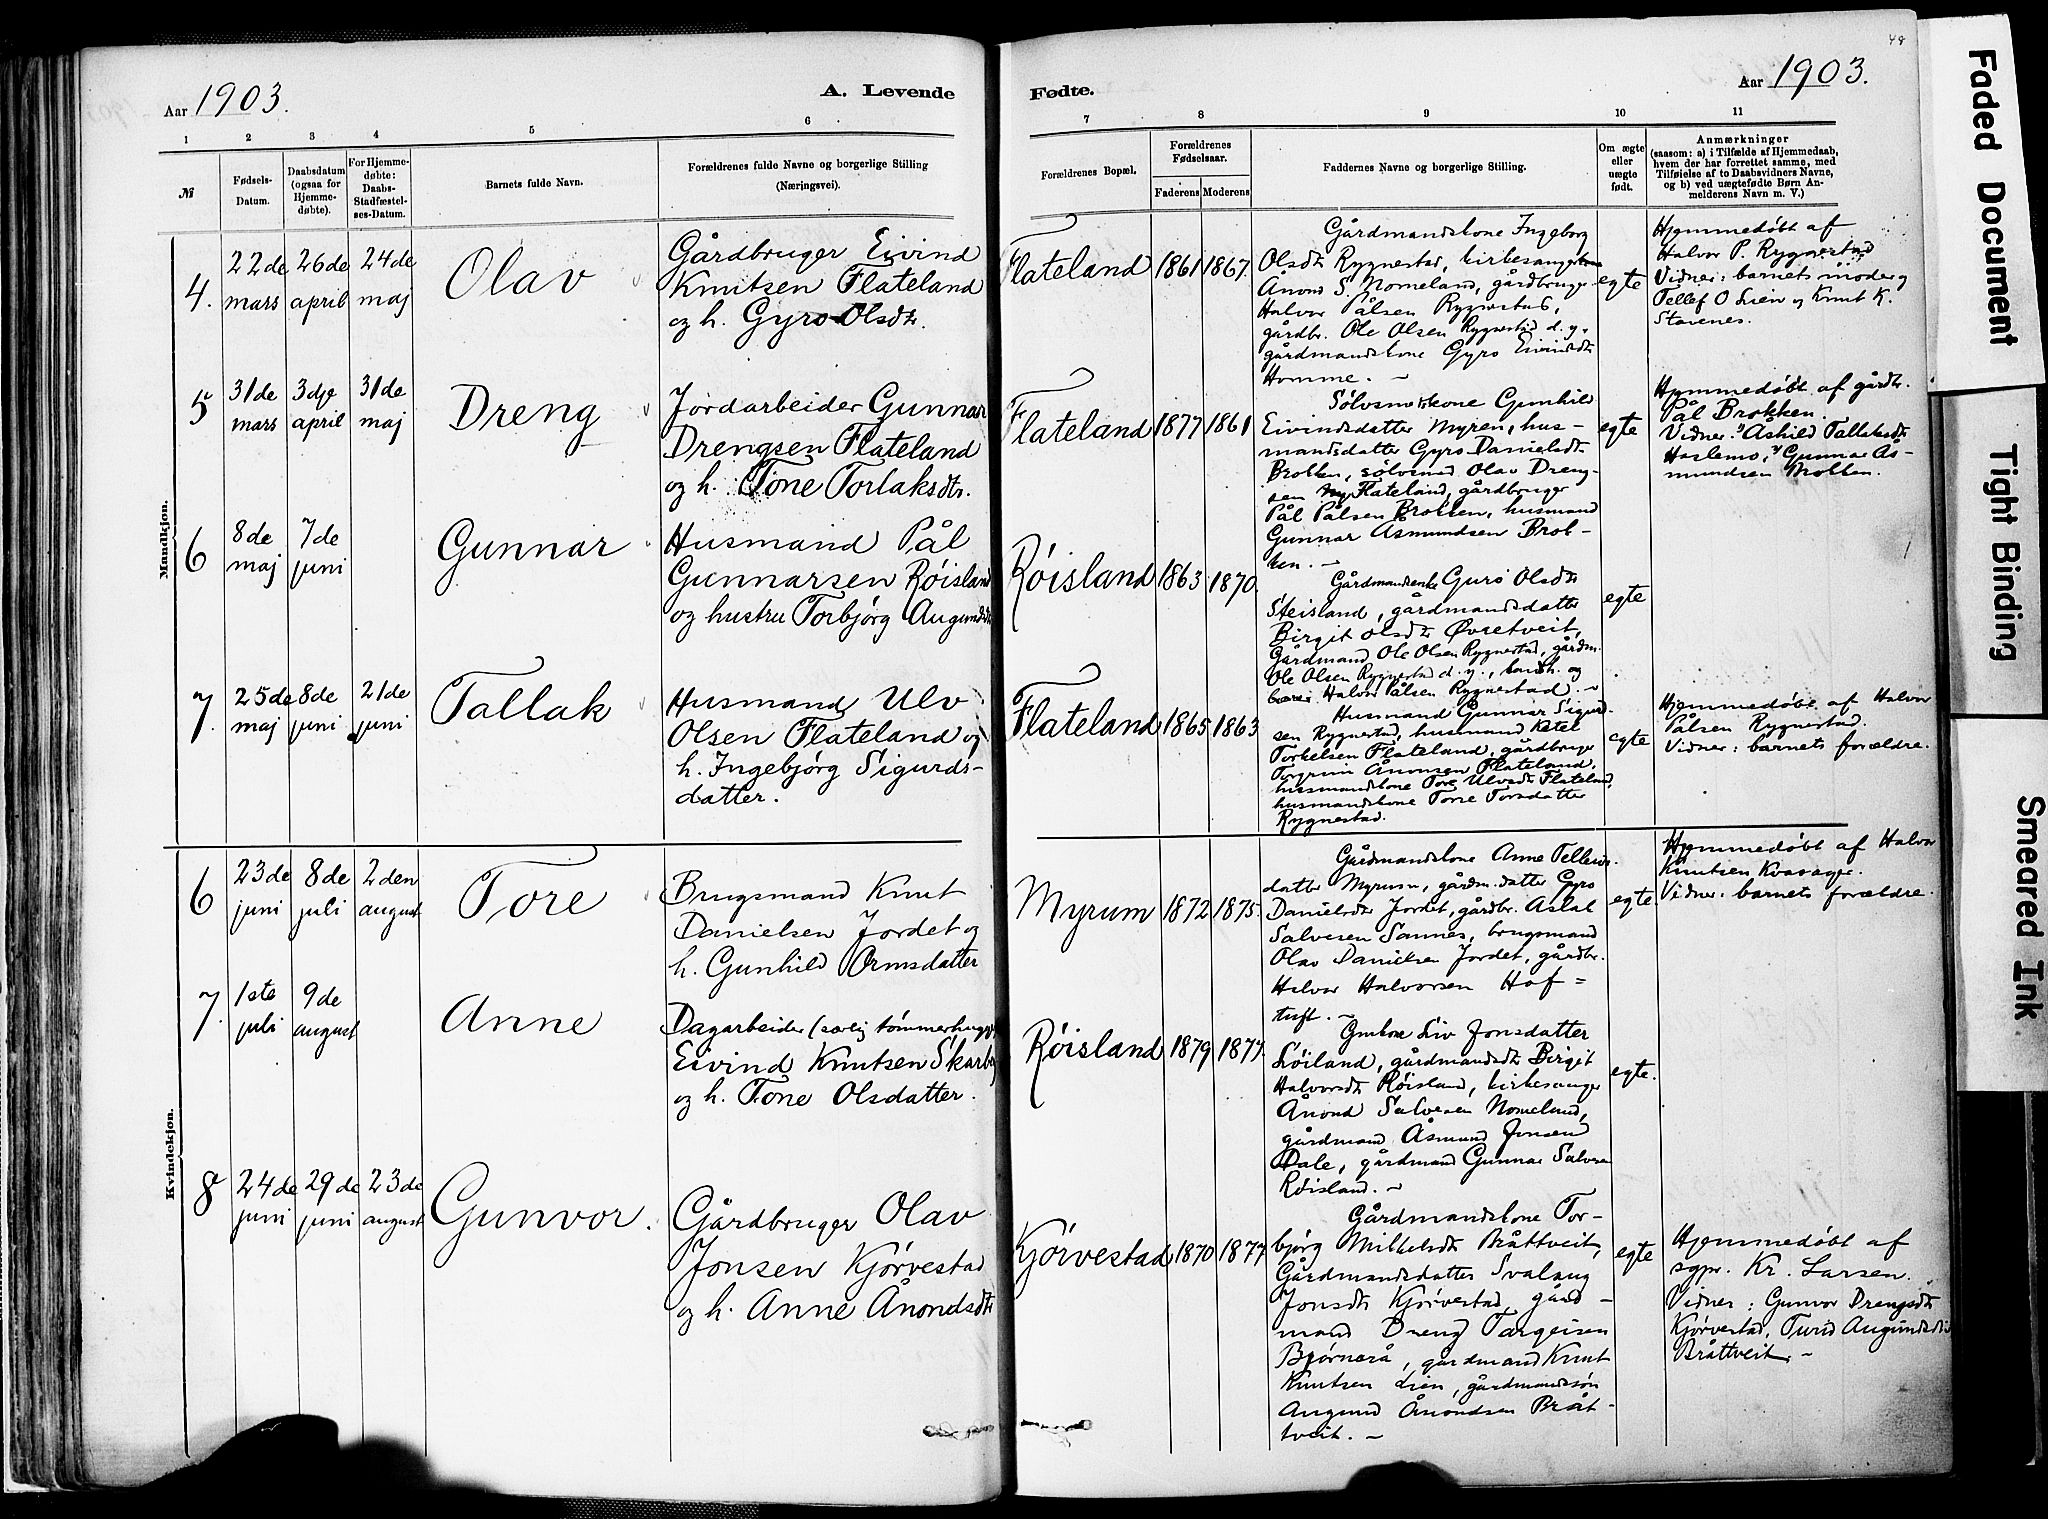 48
Aar 1903.
A. Levende
Fødte.
Aar 1903.
1 2 3 4 5 6
7 8 9 10 11
№
Fødsels-Datum.
Daabsdatum (ogsaa for Hjemmedøbte).
For Hjemmedøbte: Daabs-Stadfæstelses-Datum.
Barnets fulde Navn.
Forældrenes fulde Navne og borgerlige Stilling
(Næringsvei).
Forældrenes Bopæl.
Forældrenes Fødselsaar.
Faderens Moderens
Faddernes Navne og borgerlige Stilling.
Om ægte eller uægte født.
Anmærkninger
(saasom: a) i Tilfælde af Hjemmedaab,
hvem der har forrettet samme, med
Tilføielse af to Daabsvidners Navne,
og b) ved uægtefødte Børn An-
melderens Navn m. V.)
Mandkjøn.
4.
22de mars
26de april
24de maj
Olav
Gårdbruger Eivind
Knutsen Flateland
og h. Gyro Olsdtr.
Flateland
1861
1867.
Gårdmandskone Ingeborg
Olsdtr Rygnestad, kirkesanger
Ånond S. Nomeland, gårdbruger
Halvor Pålsen Rygnestad,
gårdbr. Ole Olsen Rygnestad d. y.
gårdmandskone Gyro Eivindsdtr
Homme. –
egte
Hjemmedøbt af
Halvor P. Rygnestad
Vidner: barnets moder og
Tellef O Lien og Knut K.
Stavenes.
5
31de mars
3dje april
31de maj
Dreng
Jordarbeider Gunnar
Drengsen Flateland
og h. Tone Torlaksdtr.
Flateland
1877
1861
Sølvsmedkone Gunhild
Eivindsdatter Myren, hus-
mandsdatter Gyro Danielsdtr
Brokken, sølvsmed Olav Dreng-
sen Flateland, gårdbruger
Pål Pålsen Brokken, husmand
Gunnar Åsmundsen Brok-
ken. –
egte
Hjemmedøbt af gårdbr.
Pål Brokken.
Vidner: Åshild Tallaksdtr
Haslemo, Gunnar Ås-
mundsen Brokken.
6
8de maj
7de juni
Gunnar
Husmand Pål
Gunnarsen Røisland
og hustru Torbjørg Augundsdtr
Røisland
1863
1870.
Gårdmandsenke Guro Olsdtr
Steisland, gårdmandsdatter
Birgit Olsdtr Øvretveit,
Gårdmand Ole Olsen Rygnestad, gårdm.
Ole Olsen Rygnestad d. y.,
Halvor Pålsen Rygnestad. –
egte
7.
25de maj
8de juni
21de juni
Tallak
Husmand Ulv
Olsen Flateland og
h. Ingebjørg Sigurds-
datter.
Flateland
1865
1863
Husmand Gunnar Sigurd-
sen Rygnestad, husmand Ketel
Torkelsen Flateland, gårdbruger
Torgrim Ånonsen Flateland,
husmandskone Tore Ulvsdtr Flateland,
husmandskone Tone Torsdatter
Rygnestad.
egte
Hjemmedøbt af Halvor
Pålsen Rygnestad.
Vidner: barnets forældre.
Kvindekjøn.
6
23de juni
8de juli
2den august
Tore
Brugsmand Knut
Danielsen Jordet og
h. Gunhild Ormsdatter
Myrum
1872
1875.
Gårdmandskone Anne Tellevs-
datter Myrum, gårdm.datter Gyro
Danielsdtr Jordet, gårdbr. Aslak
Salvesen Sannes, brugsmand
Olav Danielsen Jordet, gårdbr.
Halvor Halvorsen Hof-
tuft. –
egte.
Hjemmedøbt af Halvor
Knutsen Kvasager.
Vidner: barnets forældre.
7.
1ste juli
9de august
Anne
Dagarbeider (særlig tømmerhugger)
Eivind Knutsen Skarberg
og h. Tone Olsdatter.
Røisland
1879
1877.
Gmkone Liv Jonsdatter
Løiland, gårdmandsdtr Birgit
Halvorsdtr Røisland, kirkesanger
Ånond Salvesen Nomeland,
gårdmand Åsmund Jonsen
Dale, gårdmand Gunnar Salvesen
Røisland. –
egte.
8
24de juni
29de juni
23de august
Gunvor.
Gårdbruger Olav
Jonsen Kjørvestad
og h. Anne Ånondsdtr
Kjørvestad
1870
1877
Gårdmandskone Tor-
bjørg Mikkelsdtr Bråttveit,
Gårdmandsdatter Svalaug
Jonsdtr Kjørvestad, gård-
mand Dreng Targeisen
Bjørnerå, gårdmand Knut
Knutsen Lien, gårdmandssøn
Augund Ånondsen Bråt-
tveit. –
egte
Hjemmedøbt af
sgpr. Kr. Larsen.
Vidner: Gunvor Drengsdtr
Kjørvestad, Turid Augundsdtr
Bråttveit. –
Faded Document
Tight Binding
Smeared Ink